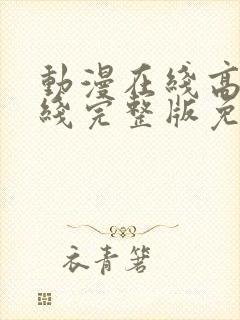 動漫在綫高
綫完整版免
衣青箬